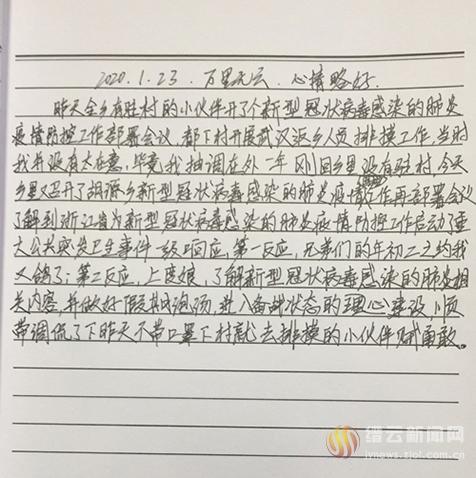 2020.1.23 万里无云 心情略好
昨天全乡有驻村的小伙伴开了个新型冠状病毒感染的肺炎
疫情防控工作部署会议，都下村开展武汉返乡人员排摸工作，当时
我并没有太在意，毕竟我抽调在外一年刚回乡里没有驻村，今天
乡里又召开了胡源乡新型冠状病毒感染的肺炎疫情防控工作再部署会议
了解到浙江省为新型冠状病毒感染的肺炎疫情防控工作启动了重
大公共突发卫生事件一级响应，第一反应，兄弟们的年初二之约我
又鸽了；第二反应，上度娘，了解新型冠状病毒感染的肺炎相
关内容，并做好假期泡汤，进入备战状态的理心建设，顺
带调侃了下昨天不带口罩下村就去排摸的小伙伴贼勇敢。
缙云新闻网
jynews.zjol.com.cn